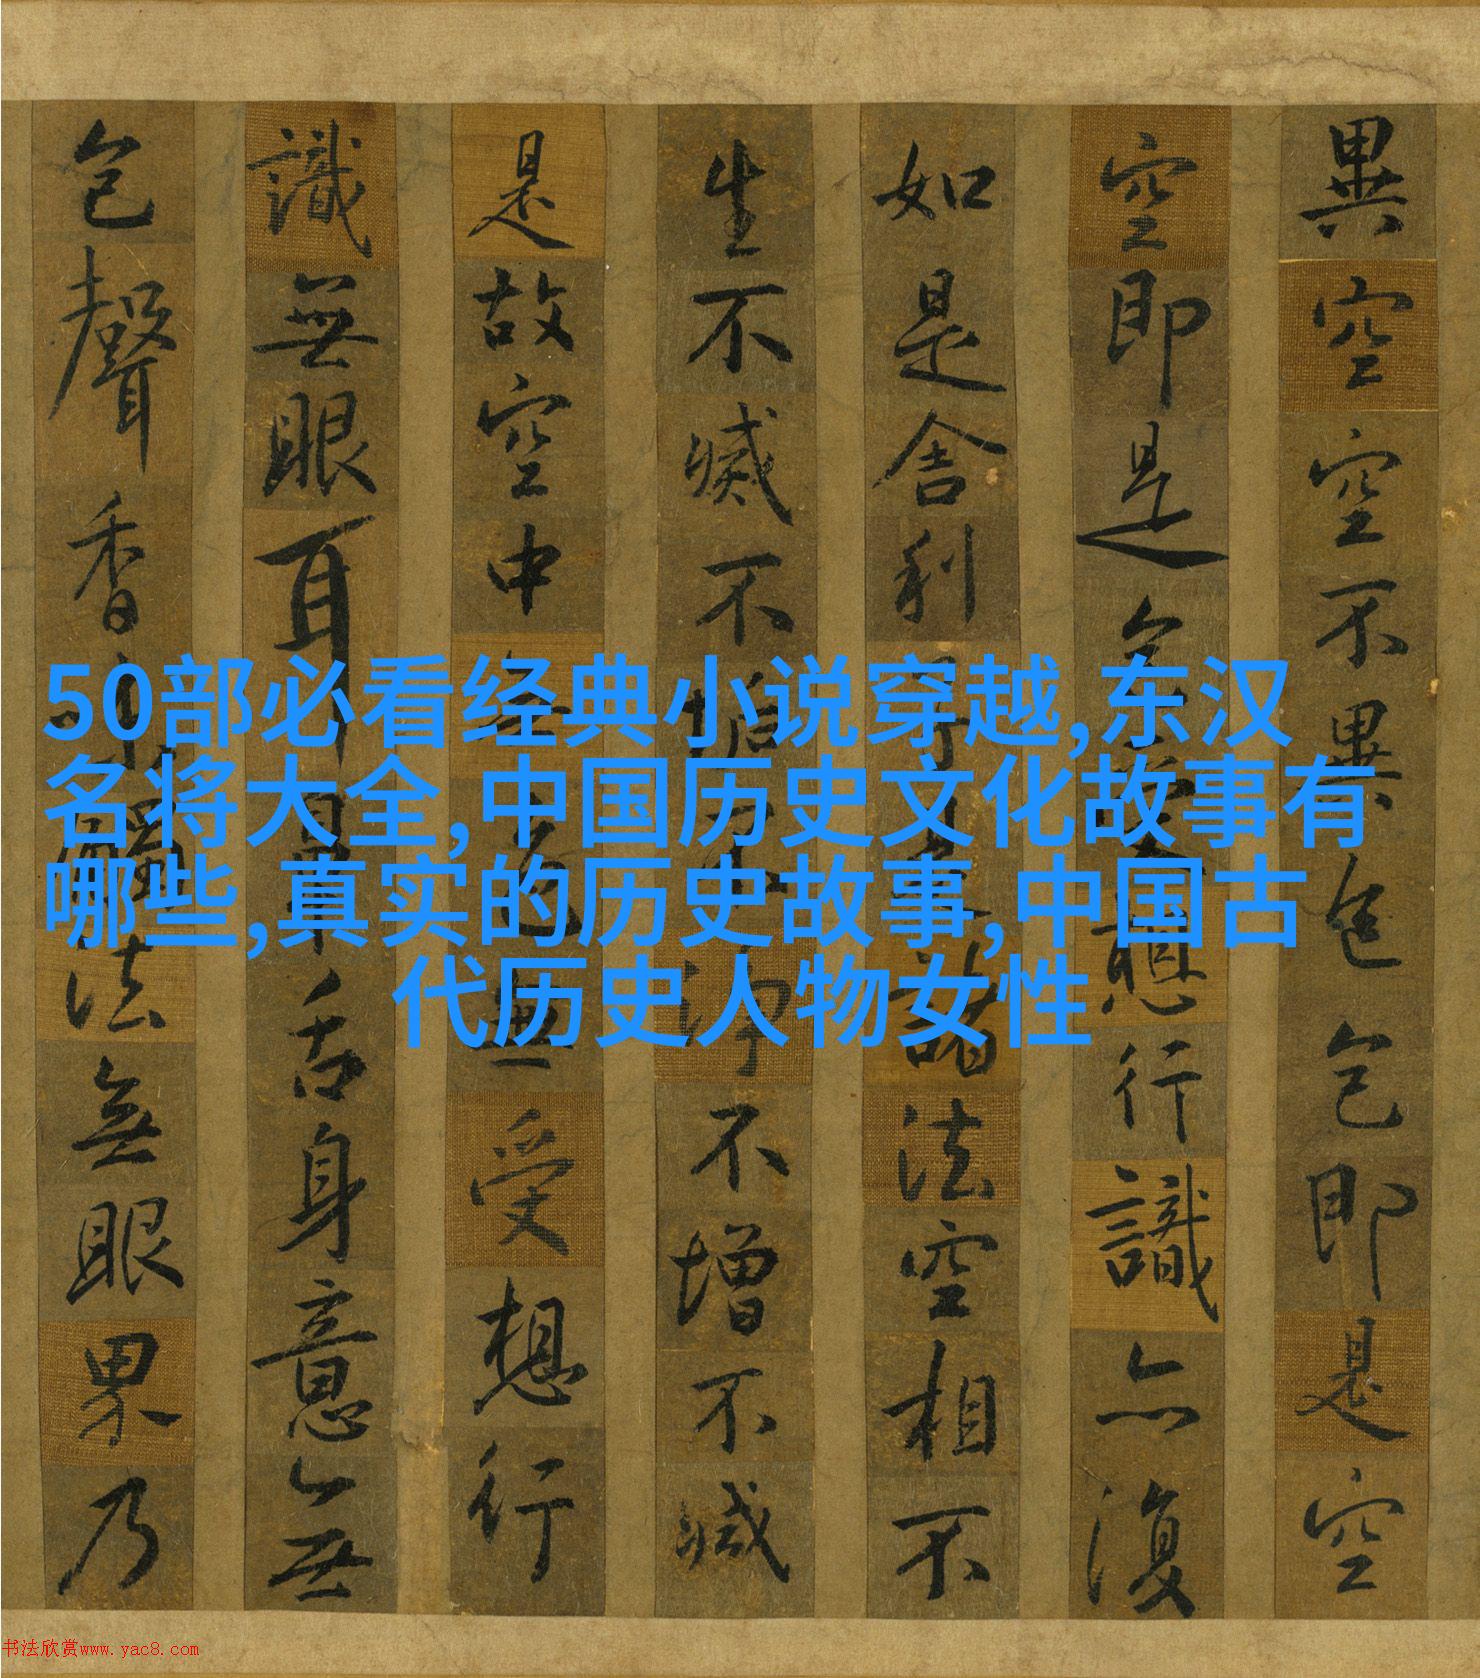 異空空不異色色即是空
空即是色受想行識亦復
如是舍利是諸法空相不
生不滅不垢不淨不增不減
是故空中無色無受想行
識無眼耳鼻舌身意無
色聲香味觸法無眼界乃
50部必看经典小说穿越,东汉
名将大全,中国历史文化故事有
哪些,真实的历史故事,中国古
代历史人物女性
书法欣赏www.yac8.com